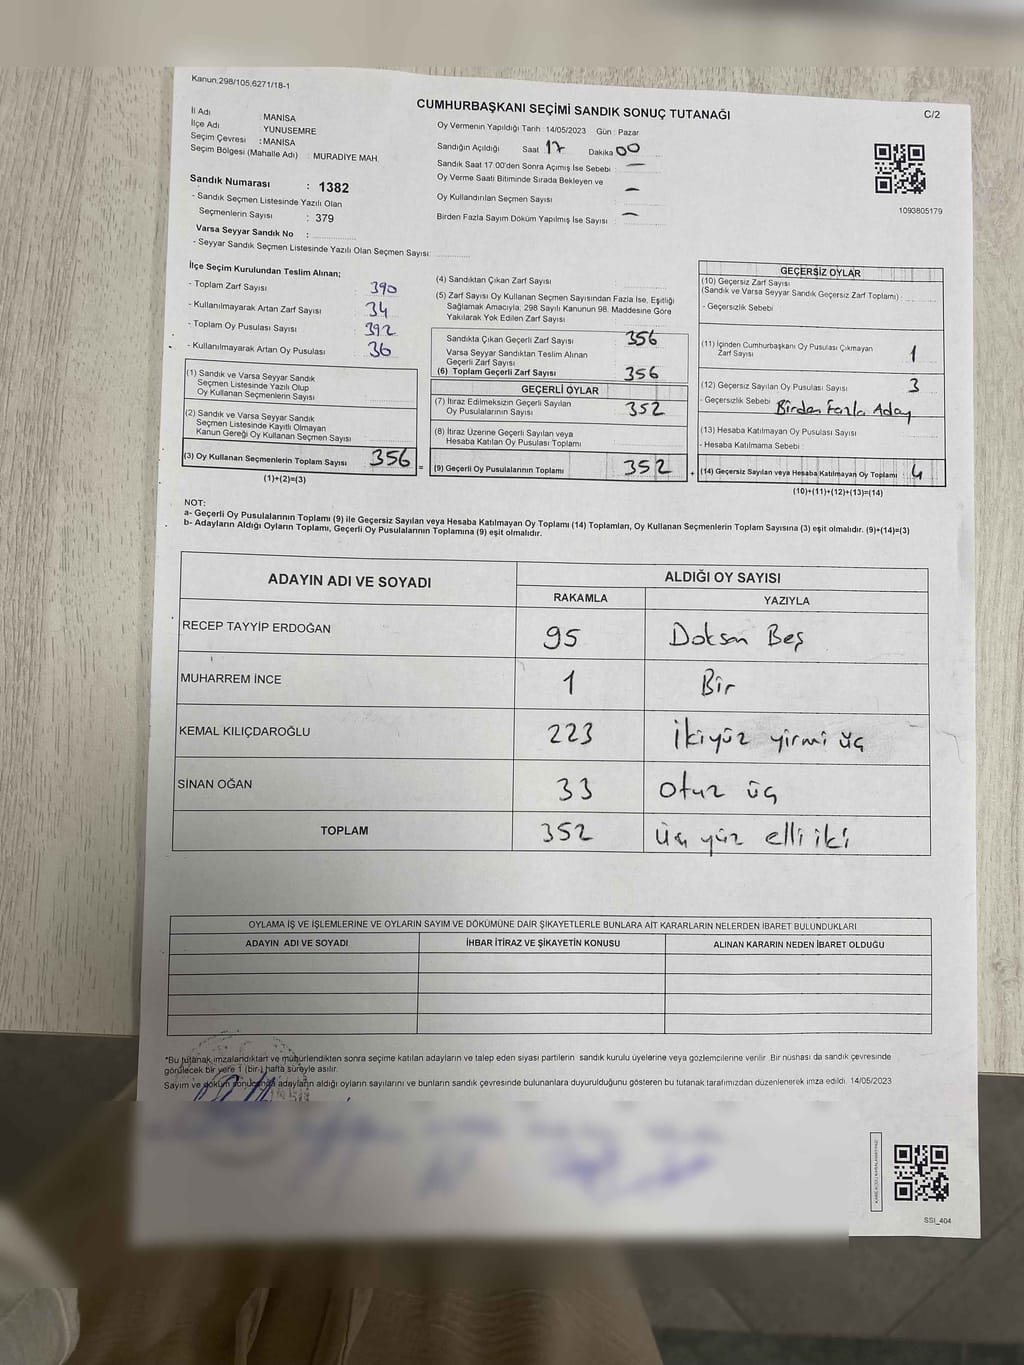 Kanun:298/105,6271/18-1
CUMHURBAŞKANI SEÇİMİ SANDIK SONUÇ TUTANAĞI
C/2
İl Adı : MANİSA
İlçe Adı : YUNUSEMRE
Seçim Çevresi : MANİSA
Seçim Bölgesi (Mahalle Adı) : MURADİYE MAH.
Oy Vermenin Yapıldığı Tarih: 14/05/2023 Gün : Pazar
Sandığın Açıldığı Saat 17 Dakika 00
Sandık Saat 17:00'den Sonra Açımış İse Sebebi : —
Oy Verme Saati Bitiminde Sırada Bekleyen ve
Oy Kullandırılan Seçmen Sayısı : —
Birden Fazla Sayım Döküm Yapılmış İse Sayısı : —
1093805179
Sandık Numarası : 1382
- Sandık Seçmen Listesinde Yazılı Olan
Seçmenlerin Sayısı : 379
Varsa Seyyar Sandık No :
- Seyyar Sandık Seçmen Listesinde Yazılı Olan Seçmen Sayısı:
İlçe Seçim Kurulundan Teslim Alınan;
- Toplam Zarf Sayısı : 390
- Kullanılmayarak Artan Zarf Sayısı : 34
- Toplam Oy Pusulası Sayısı : 392
- Kullanılmayarak Artan Oy Pusulası : 36
(1) Sandık ve Varsa Seyyar Sandık
Seçmen Listesinde Yazılı Olup
Oy Kullanan Seçmenlerin Sayısı :
(2) Sandık ve Varsa Seyyar Sandık
Seçmen Listesinde Kayıtlı Olmayan
Kanun Gereği Oy Kullanan Seçmen Sayısı :
(3) Oy Kullanan Seçmenlerin Toplam Sayısı 356 =
(1)+(2)=(3)
(4) Sandıktan Çıkan Zarf Sayısı :
(5) Zarf Sayısı Oy Kullanan Seçmen Sayısından Fazla İse, Eşitliği
Sağlamak Amacıyla; 298 Sayılı Kanunun 98. Maddesine Göre
Yakılarak Yok Edilen Zarf Sayısı :
Sandıkta Çıkan Geçerli Zarf Sayısı : 356
Varsa Seyyar Sandıktan Teslim Alınan
Geçerli Zarf Sayısı :
(6) Toplam Geçerli Zarf Sayısı : 356
GEÇERLİ OYLAR
(7) İtiraz Edilmeksizin Geçerli Sayılan
Oy Pusulalarının Sayısı : 352
(8) İtiraz Üzerine Geçerli Sayılan veya
Hesaba Katılan Oy Pusulası Toplamı :
(9) Geçerli Oy Pusulalarının Toplamı : 352 +
GEÇERSİZ OYLAR
(10) Geçersiz Zarf Sayısı
(Sandık ve Varsa Seyyar Sandık Geçersiz Zarf Toplamı) :
- Geçersizlik Sebebi :
(11) İçinden Cumhurbaşkanı Oy Pusulası Çıkmayan
Zarf Sayısı : 1
(12) Geçersiz Sayılan Oy Pusulası Sayısı : 3
- Geçersizlik Sebebi : Birden Fazla Aday
(13) Hesaba Katılmayan Oy Pusulası Sayısı :
- Hesaba Katılmama Sebebi :
(14) Geçersiz Sayılan veya Hesaba Katılmayan Oy Toplamı : 4
(10)+(11)+(12)+(13)=(14)
NOT:
a- Geçerli Oy Pusulalarının Toplamı (9) ile Geçersiz Sayılan veya Hesaba Katılmayan Oy Toplamı (14) Toplamları, Oy Kullanan Seçmenlerin Toplam Sayısına (3) eşit olmalıdır. (9)+(14)=(3)
b- Adayların Aldığı Oyların Toplamı, Geçerli Oy Pusulalarının Toplamına (9) eşit olmalıdır.
ADAYIN ADI VE SOYADI
ALDIĞI OY SAYISI
RAKAMLA YAZIYLA
RECEP TAYYİP ERDOĞAN 95 Doksan Beş
MUHARREM İNCE 1 Bir
KEMAL KILIÇDAROĞLU 223 ikiyüz yirmi üç
SİNAN OĞAN 33 otuz üç
TOPLAM 352 Üç yüz elli iki
OYLAMA İŞ VE İŞLEMLERİNE VE OYLARIN SAYIM VE DÖKÜMÜNE DAİR ŞİKAYETLERLE BUNLARA AİT KARARLARIN NELERDEN İBARET BULUNDUKLARI
ADAYIN ADI VE SOYADI İHBAR İTİRAZ VE ŞİKAYETİN KONUSU ALINAN KARARIN NEDEN İBARET OLDUĞU
*Bu tutanak imzalandıktan ve mühürlendikten sonra seçime katılan adayların ve talep eden siyasi partilerin sandık kurulu üyelerine veya gözlemcilerine verilir. Bir nüshası da sandık çevresinde
görülecek bir yere 1 (bir) hafta süreyle asılır.
Sayım ve döküm sonucunda adayların aldığı oyların sayılarını ve bunların sandık çevresinde bulunanlara duyurulduğunu gösteren bu tutanak tarafımızdan düzenlenerek imza edildi. 14/05/2023
SSI_404